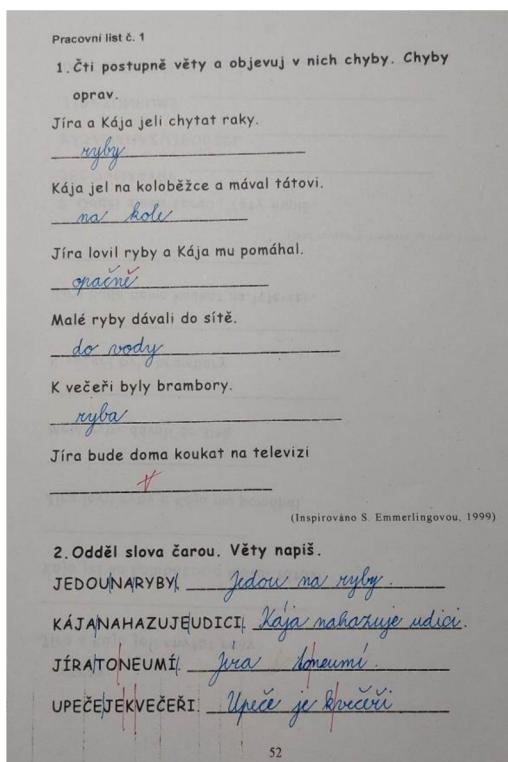 Pracovní list č. 1
1. Čti postupně věty a objevuj v nich chyby. Chyby
oprav.
Jíra a Kája jeli chytat raky.
ryby
Kája jel na koloběžce a mával tátovi.
na kole
Jíra lovil ryby a Kája mu pomáhal.
opačně
Malé ryby dávali do sítě.
do vody
K večeři byly brambory.
ryba
Jíra bude doma koukat na televizi
(Inspirováno S. Emmerlingovou, 1999)
2. Odděl slova čarou. Věty napiš.
JEDOU|NA|RYBY|. Jedou na ryby.
KÁJA|NAHAZUJE|UDICI|. Kája nahazuje udici.
JÍRA|TO|NEUMÍ|. Jíra to|neumí.
UPEČE|JE|K|VEČEŘI. Upeče je k|večeři
52